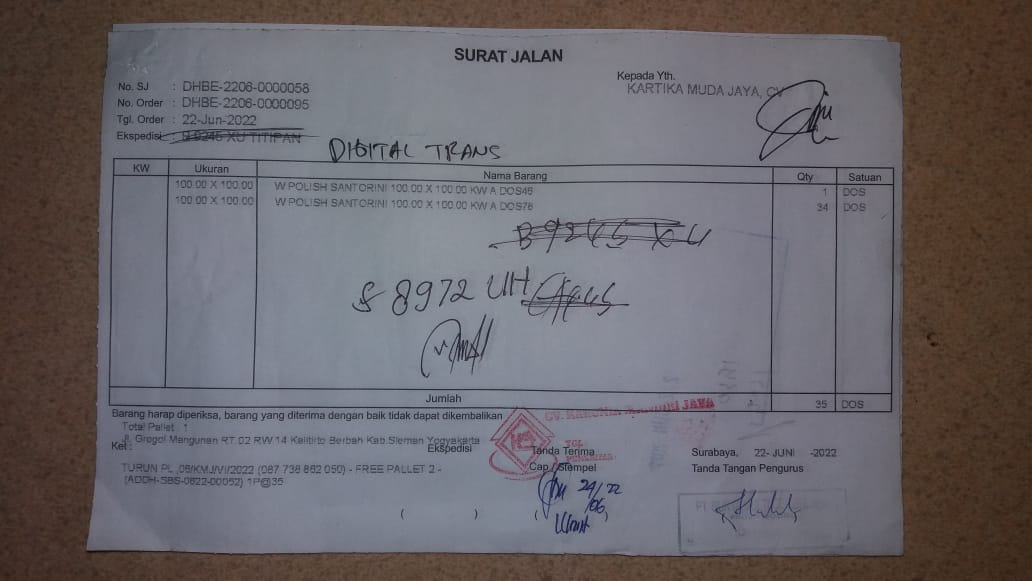 SURAT JALAN
No. SJ : DHBE-2206-0000058
No. Order : DHBE-2206-0000095
Tgl. Order : 22-Jun-2022
Ekspedisi : B 9245 XU TITIPAN
Kepada Yth.
KARTIKA MUDA JAYA, CV
DIGITAL TRANS
KW Ukuran Nama Barang Qty Satuan
100.00 X 100.00 W POLISH SANTORINI 100.00 X 100.00 KW A DOS46 1 DOS
100.00 X 100.00 W POLISH SANTORINI 100.00 X 100.00 KW A DOS78 34 DOS
B 9245 XU
S 8972 UH
Jumlah 35 DOS
Barang harap diperiksa, barang yang diterima dengan baik tidak dapat dikembalikan
Total Pallet : 1
Jl. Grogol Mangunan RT 02 RW 14 Kalitirto Berbah Kab.Sleman Yogyakarta
Ket :
TURUN PL ,06/KMJ/VI/2022 (087 738 862 050) - FREE PALLET 2 -
(ADDH-SBS-0622-00052) 1P@35
Ekspedisi
( )
Tanda Terima
Cap / Stempel
24/22
/06
JAYA
TGL
Surabaya, 22- JUNI -2022
Tanda Tangan Pengurus